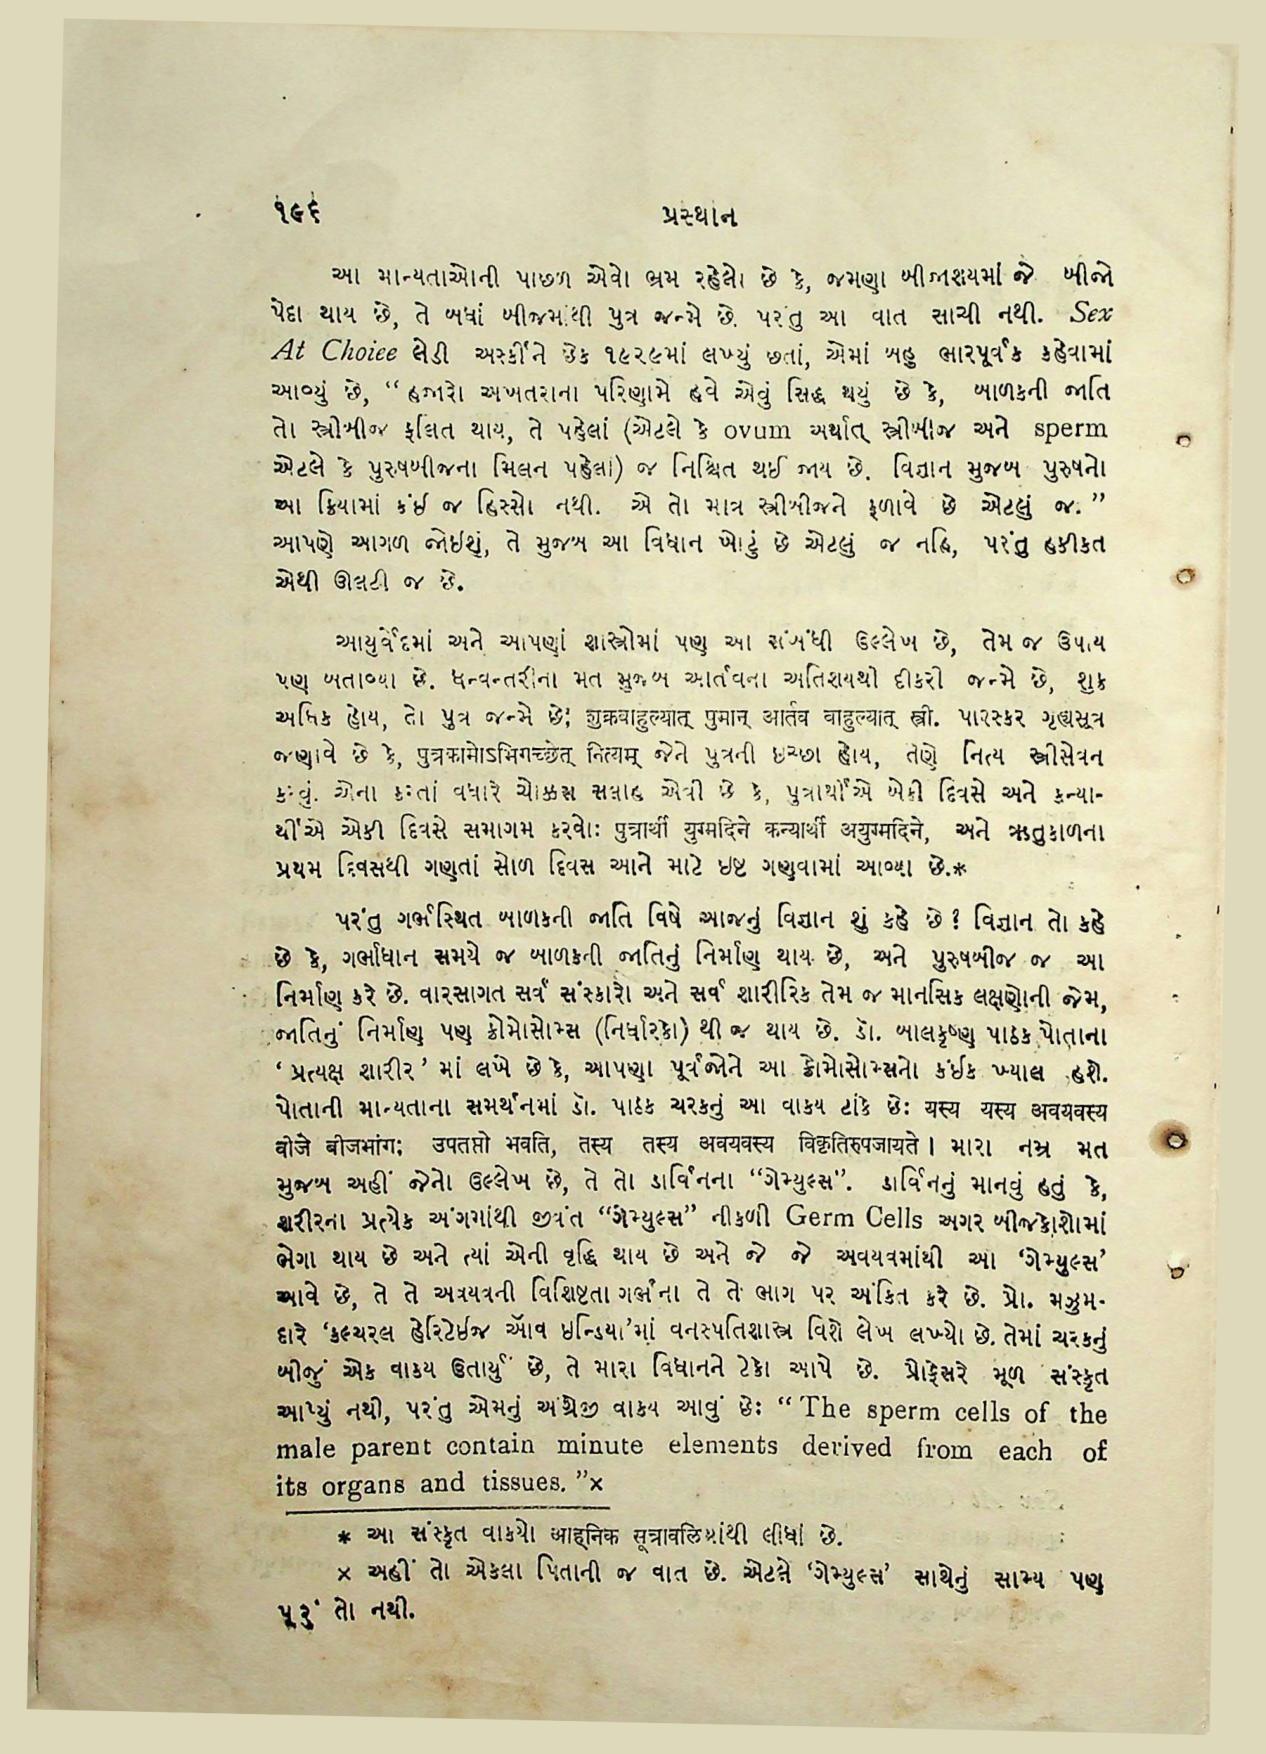 ૧૯૬
પ્રસ્થાન
આ માન્યતાઓની પાછળ એવો ભ્રમ રહેલો છે કે, જમણા બીજાશયમાં જે બીજો
પેદા થાય છે, તે બધાં બીજમાંથી પુત્ર જન્મે છે. પરંતુ આ વાત સાચી નથી. Sex
At Choice લેડી અર્સ્કીને છેક ૧૯૨૯માં લખ્યું છતાં, એમાં બહુ ભારપૂર્વક કહેવામાં
આવ્યું છે, “હજારો અખતરાના પરિણામે હવે એવું સિદ્ધ થયું છે કે, બાળકની જાતિ
તો સ્ત્રીબીજ ફલિત થાય, તે પહેલાં (એટલે કે ovum અર્થાત્ સ્ત્રીબીજ અને sperm
એટલે કે પુરુષબીજના મિલન પહેલાં) જ નિશ્ચિત થઈ જાય છે. વિજ્ઞાન મુજબ પુરુષનો
આ ક્રિયામાં કંઈ જ હિસ્સો નથી. એ તો માત્ર સ્ત્રીબીજને ફળાવે છે એટલું જ.”
આપણે આગળ જોઇશું, તે મુજબ આ વિધાન ખોટું છે એટલું જ નહિ, પરંતુ હકીકત
એથી ઊલટી જ છે.
આયુર્વેદમાં અને આપણાં શાસ્ત્રોમાં પણ આ સંબંધી ઉલ્લેખ છે, તેમ જ ઉપાય
પણ બતાવ્યા છે. ધન્વન્તરીના મત મુજબ આર્તવના અતિશયથી દીકરી જન્મે છે, શુક્ર
અધિક હોય, તો પુત્ર જન્મે છે; शुक्रवाहुल्यात् पुमान् आर्तव वाहुल्यात् स्त्री. પારસ્કર ગૃહ્યસૂત્ર
જણાવે છે કે, पुत्रकामोऽभिगच्छेत् नित्यम् જેને પુત્રની ઇચ્છા હોય, તેણે નિત્ય સ્ત્રીસેવન
કરવું. એના કરતાં વધારે ચોક્કસ સલાહ એવી છે કે, પુત્રાર્થીએ બેકી દિવસે અને કન્યા-
ર્થીએ એકી દિવસે સમાગમ કરવો: पुत्रार्थी युग्मदिने कन्यार्थी अयुग्मदिने, અને ઋતુકાળના
પ્રથમ દિવસથી ગણતાં સોળ દિવસ આને માટે ઇષ્ટ ગણવામાં આવ્યા છે.*
પરંતુ ગર્ભસ્થિત બાળકની જાતિ વિષે આજનું વિજ્ઞાન શું કહે છે? વિજ્ઞાન તો કહે
છે કે, ગર્ભાધાન સમયે જ બાળકની જાતિનું નિર્માણ થાય છે, અને પુરુષબીજ જ આ
નિર્માણ કરે છે. વારસાગત સર્વ સંસ્કારો અને સર્વ શારીરિક તેમ જ માનસિક લક્ષણોની જેમ,
જાતિનું નિર્માણ પણ ક્રોમોસોમ્સ (નિર્ધારકો) થી જ થાય છે. ડૉ. બાલકૃષ્ણ પાઠક પોતાના
‘પ્રત્યક્ષ શારીર’ માં લખે છે કે, આપણા પૂર્વજોને આ ક્રોમોસોમ્સનો કંઇક ખ્યાલ હશે.
પોતાની માન્યતાના સમર્થનમાં ડૉ. પાઠક ચરકનું આ વાક્ય ટાંકે છે: यस्य यस्य अवयवस्य
बीजे बीजभांगः उपतप्तो भवति, तस्य तस्य अवयवस्य विकृतिरुपजायते। મારા નમ્ર મત
મુજબ અહીં જેનો ઉલ્લેખ છે, તે તો ડાર્વિનના “ગેમ્યુલ્સ”. ડાર્વિનનું માનવું હતું કે,
શરીરના પ્રત્યેક અંગમાંથી જીવંત “ગેમ્યુલ્સ” નીકળી Germ Cells અગર બીજકોશોમાં
ભેગા થાય છે અને ત્યાં એની વૃદ્ધિ થાય છે અને જે જે અવયવમાંથી આ ‘ગેમ્યુલ્સ’
આવે છે, તે તે અવયવની વિશિષ્ટતા ગર્ભના તે તે ભાગ પર અંકિત કરે છે. પ્રો. મઝુમ-
દારે ‘કલ્ચરલ હેરિટેઇજ ઑવ ઇન્ડિયા’માં વનસ્પતિશાસ્ત્ર વિશે લેખ લખ્યો છે. તેમાં ચરકનું
બીજું એક વાક્ય ઉતાર્યું છે, તે મારા વિધાનને ટેકો આપે છે. પ્રોફેસરે મૂળ સંસ્કૃત
આપ્યું નથી, પરંતુ એમનું અંગ્રેજી વાક્ય આવું છે: “The sperm cells of the
male parent contain minute elements derived from each of
its organs and tissues.”×
* આ સંસ્કૃત વાક્યો आह्निक सूत्रावलिમાંથી લીધાં છે.
× અહીં તો એકલા પિતાની જ વાત છે. એટલે ‘ગેમ્યુલ્સ’ સાથેનું સામ્ય પણ
પૂરું તો નથી.